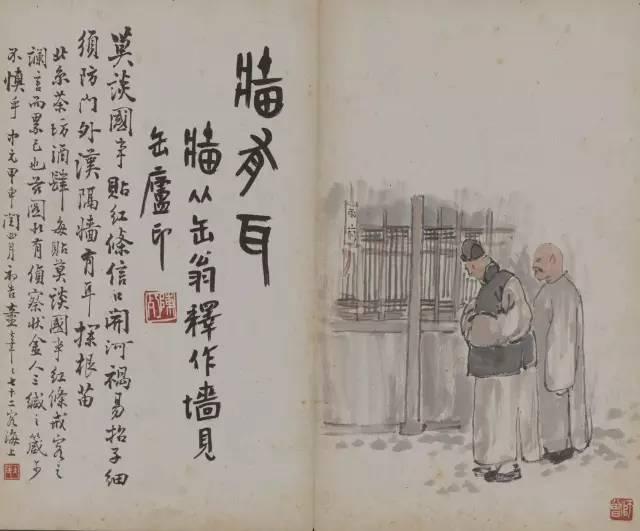 牆有耳
牆从缶翁釋作墻見
缶廬印
莫談國事貼紅條信口開河禍易招子細
須防門外漢隔牆有耳探根苗
北京茶坊酒肆每貼莫談國事紅條戒客之
讕言而累己也茲圖殊有偵察狀金人三緘之箴可
不慎乎 甲申閏四月初吉 七十二客海上
師曾